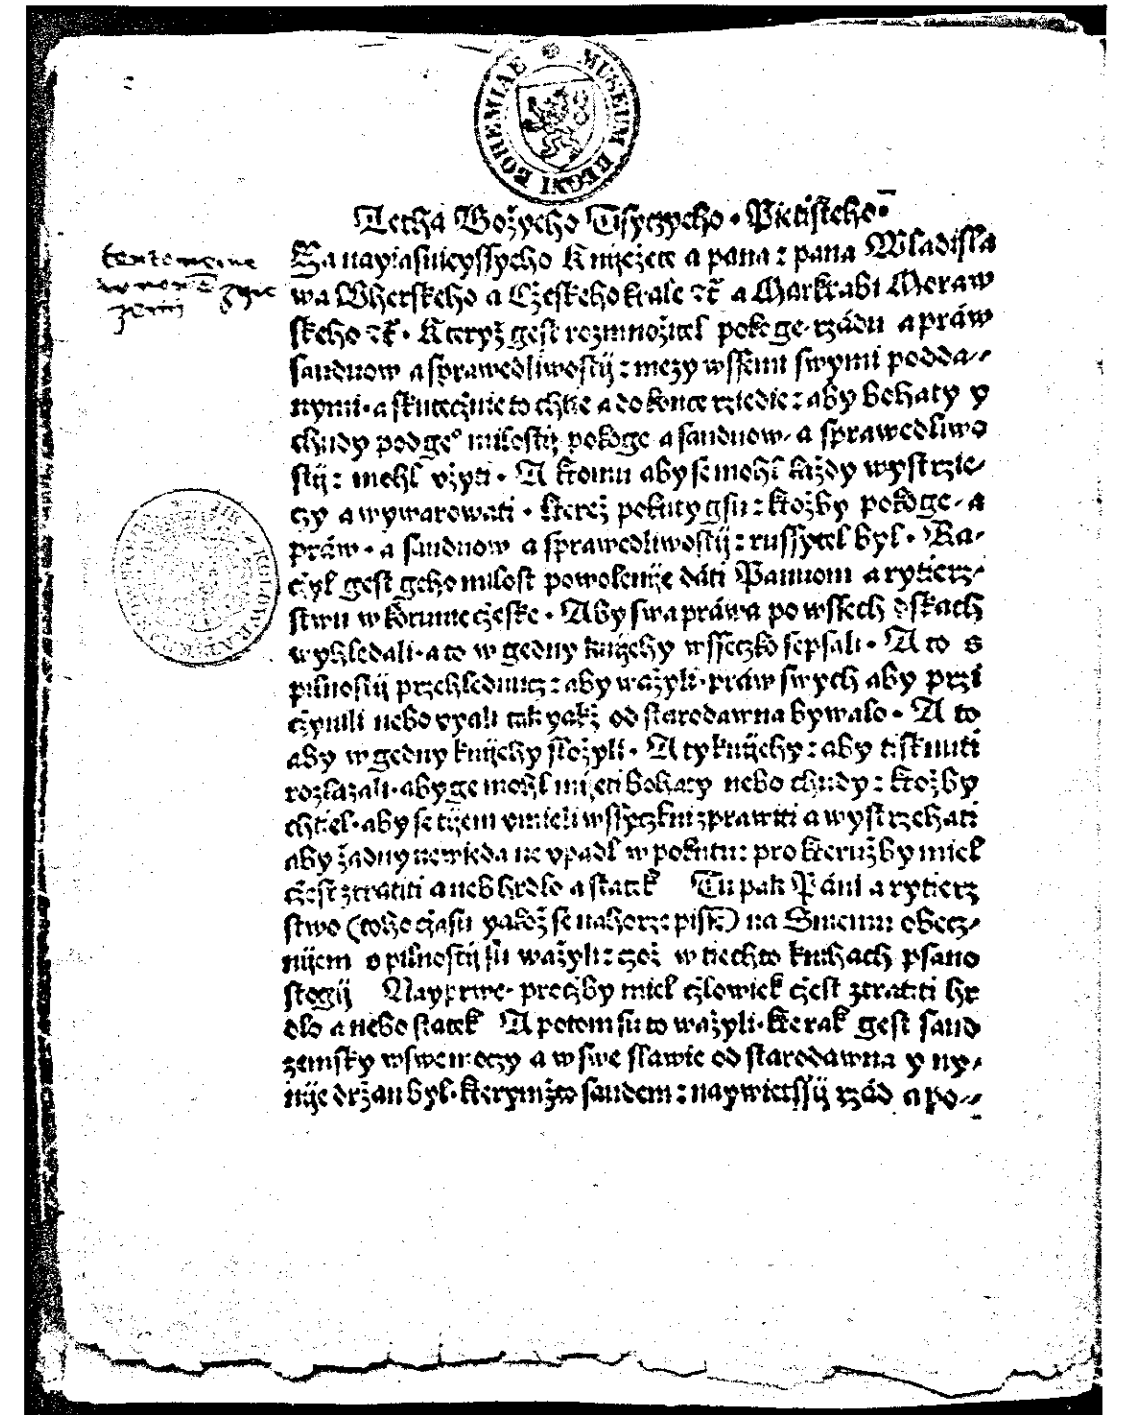 MUSEUM REGNI BOHEMIAE
Letha Božycho Tisyczycho · Pietisteho·
Za nayiasnieyssycho Kniježete a pana : pana Wladisla
wa Vherskeho a Cžeskeho krale ⁊č a Markrabi Moraw
skeho ⁊č · Kteryž gest rozmnožitel pokoge rzádu a práw
sauduow a sprawedliwostij : mezy wssemi swymi podda⸗
nymi · a skutecžnie to chtie a do konce rziedie : aby bohaty y
chudy pod ge° milostij pokoge a sauduow a sprawedliwo
stij : mohl vžyti · A ktomu aby se mohl každy wystrzie⸗
czy a wywarowati · kterež pokuty gsu : ktožby pokoge a
práw · a sauduow a sprawedliwostij : russytel byl · Ra⸗
cžyl gest geho milost powolenije dáti Pannom a rytierz⸗
stwu w korunie cžeske · Aby swa práwa po wssech dskach
wyhledali · a to w gedny knijehy wsseczko sepsali · A to s
pilnostij przehlednucz : aby wažyli práw swych aby przi
cžynili nebo vyali tak yakž od starodawna bywalo · A to
aby w gedny knijehy složyli · A ty knijehy : aby tisknuti
rozkazali · aby ge mohl mijeti bohaty nebo chudy : ktožby
chtiel · aby se tijem vmieli wssyczkni zprawiti a wystrzehati
aby žadny newieda ne vpadl w pokutu : pro kteružby miel
cžest ztratiti a neb hrdlo a statek Tu pak Páni a rytierz
stwo (toho cžasu yakož se nahorze piss) na Sniemu obecz⸗
nijem s pilnostij su wažyli : czož w tiechto knihach psano
stogij Nayprwe · procžby miel cžlowiek cžest ztratiti hr
dlo a nebo statek A potom su to wažyli · kterak gest saud
zemsky w swe moczy a w swe slawie od starodawna y ny⸗
nije držan byl · kterymžto saudem : naywietssij rzád a po⸗